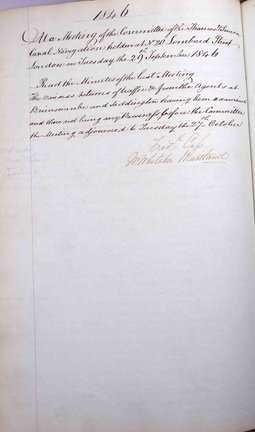 1846
At a Meeting of the Committee of the Thames & Severn
Canal Navigation holden at No 20 Lombard Street
London on Tuesday the 29th September 1846
Read the Minutes of the last Meeting
The various returns of traffic &c from the Agents at
Brimscombe and Inglesham having been examined
and there not being any Business before the Committee
the Meeting adjourned to Tuesday the 27th October
Whitaker Maitland